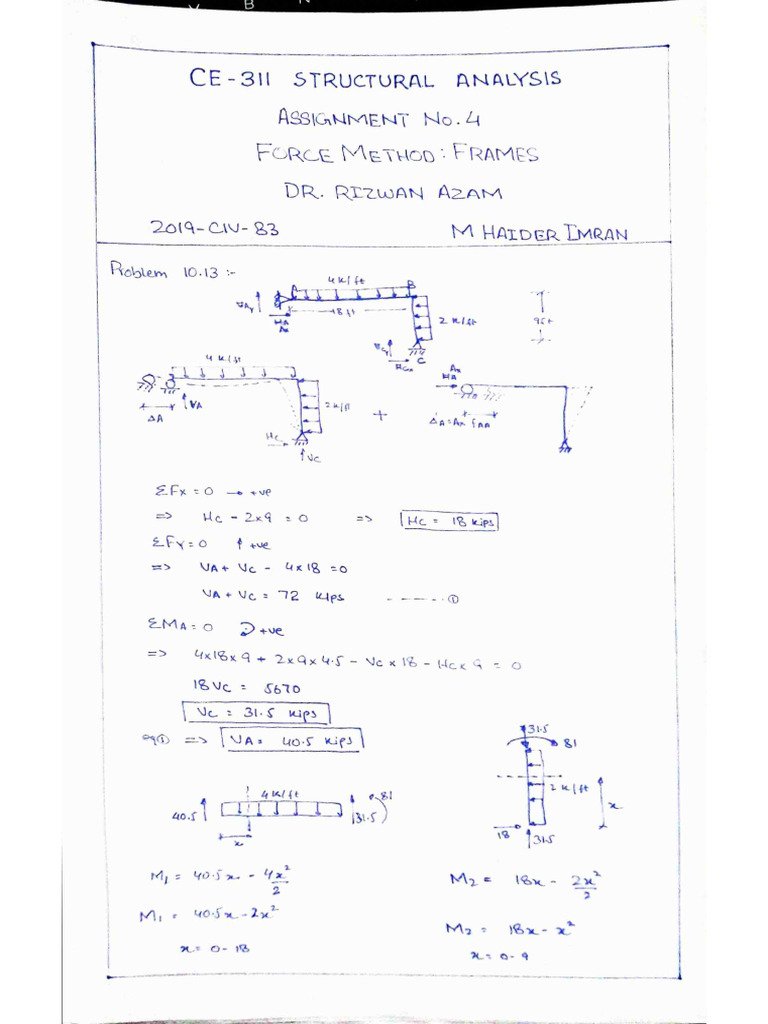 CE-311 STRUCTURAL ANALYSIS
ASSIGNMENT No. 4
FORCE METHOD: FRAMES
DR. RIZWAN AZAM
2019-CIV-83 M HAIDER IMRAN
Problem 10.13 :-
4K/ft
B
18 ft
2 K/ft
9ft
HA
Ax
C
4 K/ft
VA
ΔA
2K/ft
Hc
Vc
+
Ax
HA
ΔA = Ax fAA
ΣFx = 0 → +ve
=> Hc - 2x9 = 0 => Hc = 18 Kips
ΣFy = 0 ↑ +ve
=> VA + Vc - 4x18 = 0
VA + Vc = 72 Kips ------ ①
ΣMA = 0 +ve
=> 4x18x9 + 2x9x4.5 - Vc x 18 - Hc x 9 = 0
18Vc = 5670
Vc = 31.5 Kips
eq① => VA = 40.5 Kips
31.5
81
2 K/ft
x
18
31.5
4K/ft
81
40.5
31.5
x
M₁ = 40.5x - 4x²/2
M₂ = 18x - 2x²/2
M₁ = 40.5x - 2x²
M₂ = 18x - x²
x = 0 - 18
x = 0 - 9